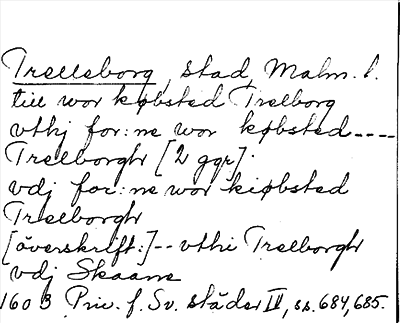 Trelleborg, stad, Malm. l.
till wor købsted Trelborg
vthj for:ne wor købsted ----
Trelborgh [2 ggr].
vdj for:ne wor kiøbsted
Trelborgh
[överskrift:] -- vthi Trelborgh
vdj Skaane
1603 Priv. f. Sv. städer IV, ss. 684, 685.